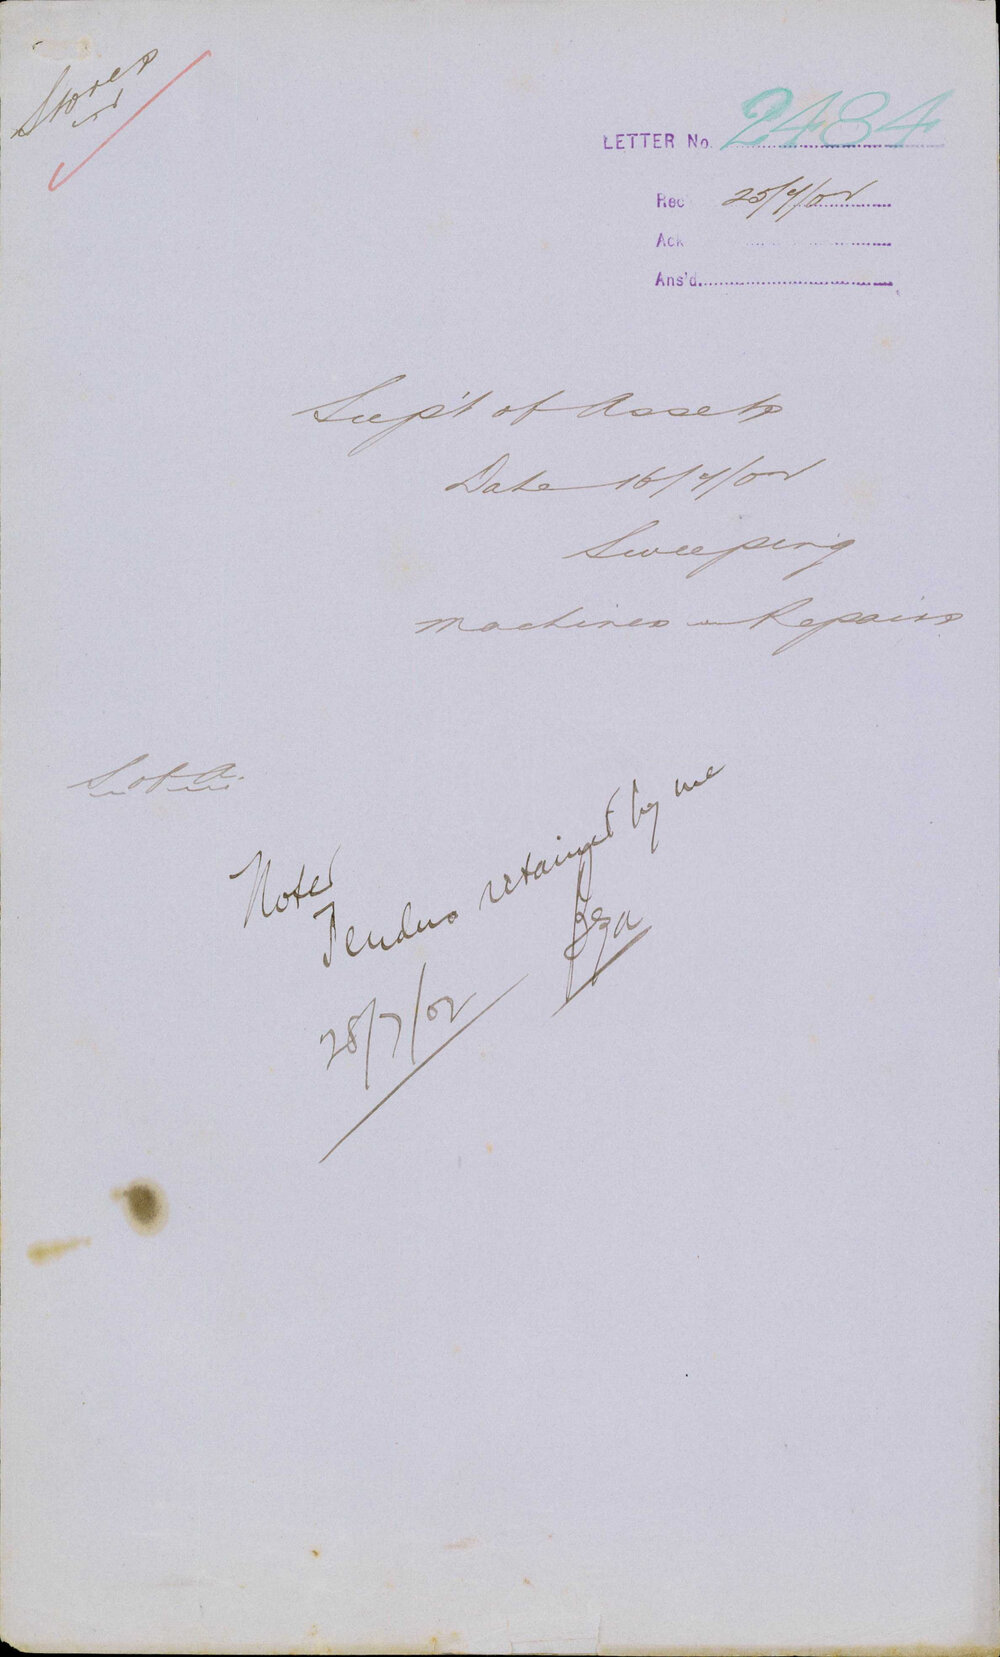 Stores
LETTER No. 2484
Rec 25/7/02
Ack
Ans'd.
Sup't of Assets
Date 16/7/02
Sweeping
Machines - Repairs
S of A.
Noted
Tenders retained by me
28/7/02